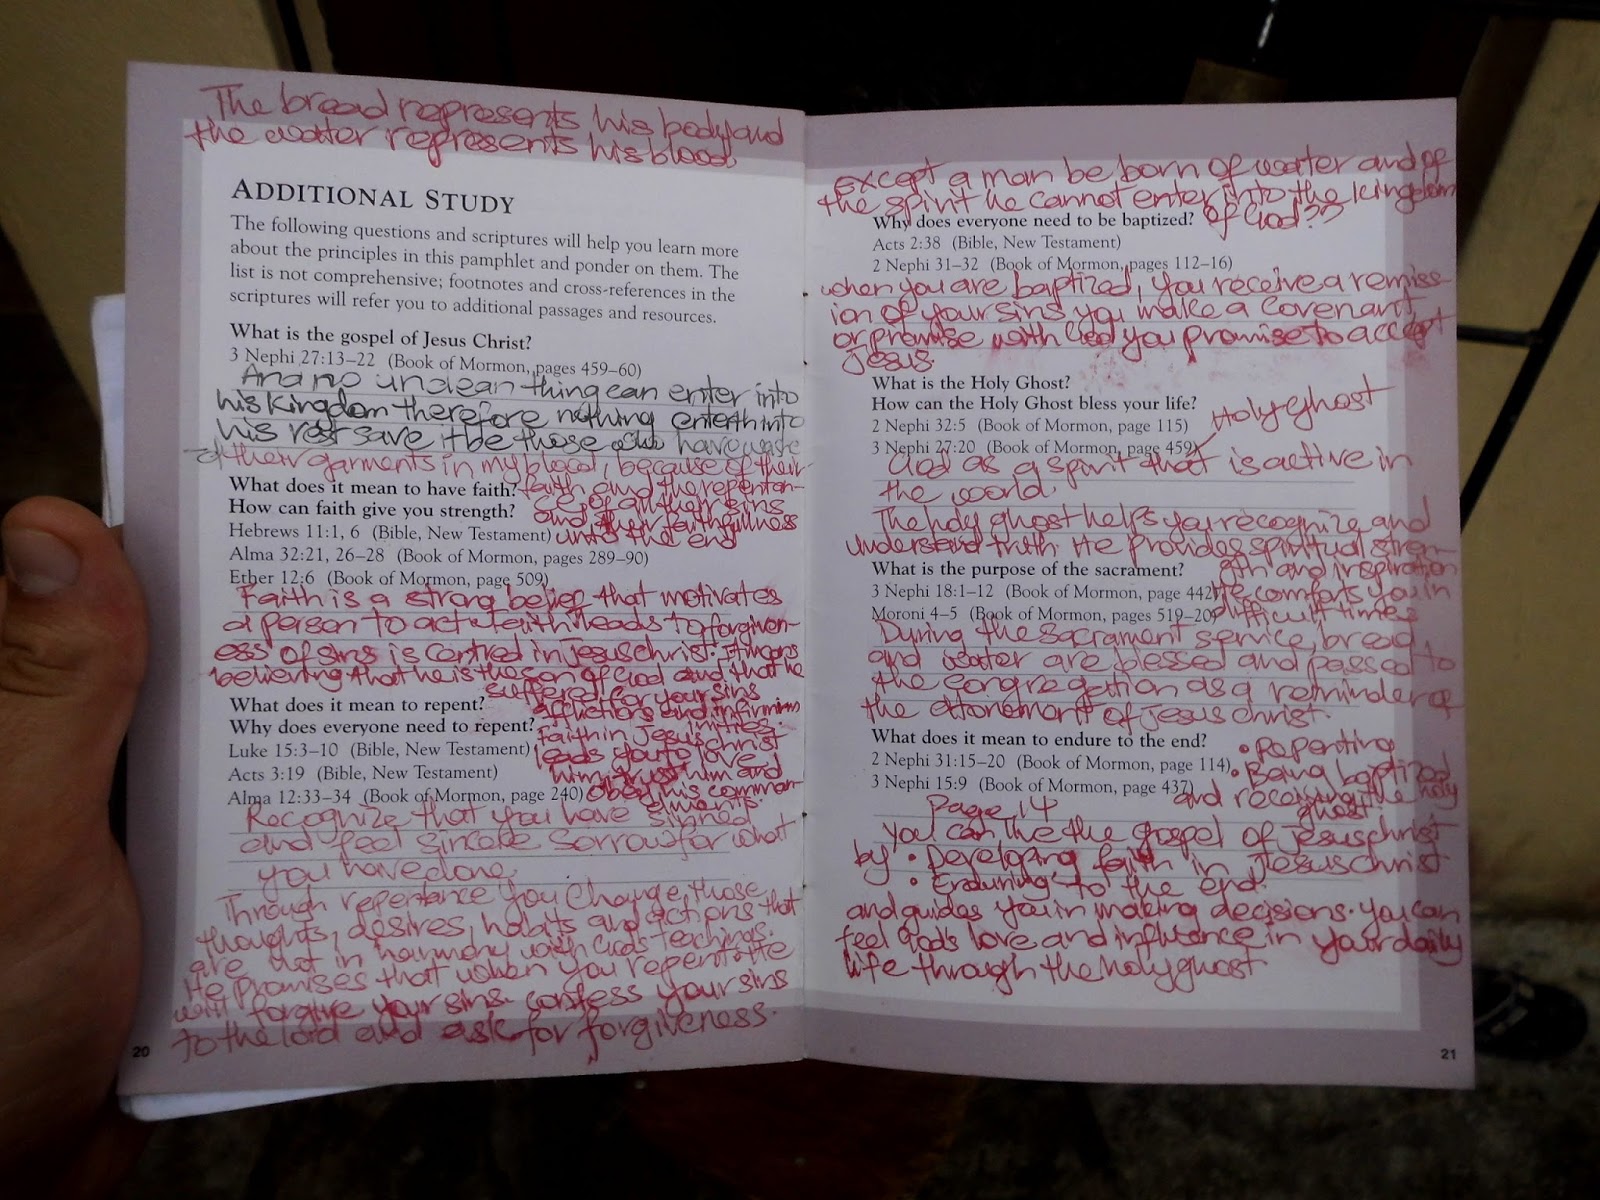 The bread represents his body and
the water represents his blood
ADDITIONAL STUDY
The following questions and scriptures will help you learn more
about the principles in this pamphlet and ponder on them. The
list is not comprehensive; footnotes and cross-references in the
scriptures will refer you to additional passages and resources.
What is the gospel of Jesus Christ?
3 Nephi 27:13–22 (Book of Mormon, pages 459–60)
And no unclean thing can enter into
his kingdom therefore nothing entereth into
his rest save it be those who have wash
ed their garments in my blood, because of their
What does it mean to have faith? faith and the repentan-
How can faith give you strength? se of all their sins
and their faithfullness
Hebrews 11:1, 6 (Bible, New Testament) unto the end
Alma 32:21, 26–28 (Book of Mormon, pages 289–90)
Ether 12:6 (Book of Mormon, page 509)
Faith is a strong belief that motivates
a person to act faith leads to forgiven-
ess of sins is centred in Jesus christ. It means
believing that he is the son of God and that he
suffered for your sins
What does it mean to repent? afflictions and infirmities
Why does everyone need to repent? Faith in Jesus christ
Luke 15:3–10 (Bible, New Testament) leads you to love
Acts 3:19 (Bible, New Testament) him, trust him and
Alma 12:33–34 (Book of Mormon, page 240) obey his comman-
dments.
Recognize that you have sinned
and feel sincere sorrow for what
you have done
Through repentance you change, those
thoughts, desires, habits and actions that
are not in harmony with God's teachings.
He promises that when you repent He
will forgive your sins. confess your sins
to the lord and ask for forgiveness.
20
except a man be born of water and of
the spirit he cannot enter into the kingdom
of God??
Why does everyone need to be baptized?
Acts 2:38 (Bible, New Testament)
2 Nephi 31–32 (Book of Mormon, pages 112–16)
when you are baptized, you receive a remiss-
ion of your sins you make a covenant
or promise with God you promise to accept
Jesus.
What is the Holy Ghost?
How can the Holy Ghost bless your life?
2 Nephi 32:5 (Book of Mormon, page 115) Holy ghost
3 Nephi 27:20 (Book of Mormon, page 459)
God as a spirit that is active in
the world.
The holy ghost helps you recognize and
understand truth He provides spiritual stren-
What is the purpose of the sacrament? gth and inspiration
3 Nephi 18:1–12 (Book of Mormon, page 442) He comforts you in
Moroni 4–5 (Book of Mormon, pages 519–20) difficult times
During the sacrament service, bread
and water are blessed and passed to
the congregation as a reminder of
the attonement of Jesus christ.
What does it mean to endure to the end? • Repenting
2 Nephi 31:15–20 (Book of Mormon, page 114) • Being baptized
3 Nephi 15:9 (Book of Mormon, page 437) and receiving the holy
ghost
Page 14
you can the the gospel of Jesus christ
by • Developing faith in Jesus christ
• Enduring to the end.
and guides you in making decisions. you can
feel God's love and influence in your daily
life through the holy ghost
21